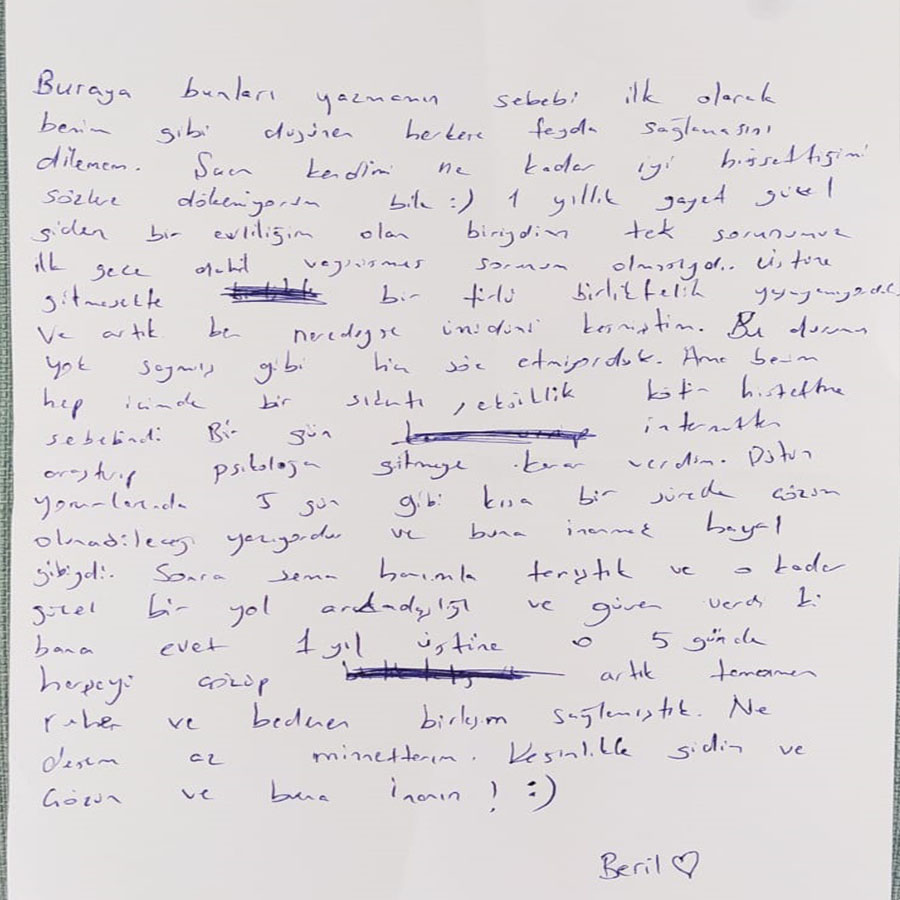 Buraya bunları yazmamın sebebi ilk olarak
benim gibi düşünen herkese fayda sağlamasını
dilemem. Şuan kendimi ne kadar iyi hissettiğimi
sözlere dökemiyorum bile :) 1 yıllık gayet güzel
giden bir evliliğim olan biriydim tek sorunumuz
ilk gece dahil vaginismus sorunum olmasıydı.. Üstüne
gitmesekte bir türlü birliktelik yaşayamıyorduk
ve artık ben neredeyse ümidimi kesmiştim. Bu durumu
yok saymış gibi hiç söz etmiyorduk. Ama benim
hep içimde bir sıkıntı, eksiklik kötü hissetme
sebebimdi. Bir gün internetten
araştırıp psikoloğa gitmeye karar verdim. Bütün
yorumlarında 5 gün gibi kısa bir sürede çözüm
olunabileceği yazıyordu ve buna inanmak hayal
gibiydi. Sonra sema hanımla tanıştık ve o kadar
güzel bir yol arkadaşlığı ve güven verdi ki
bana evet 1 yıl üstüne o 5 günde
herşeyi çözüp artık tamamen
ruhen ve bedenen birleşim sağlamıştık. Ne
desem az minnettarım. Kesinlikle gidin ve
çözün ve buna inanın! :)
Beril ♡